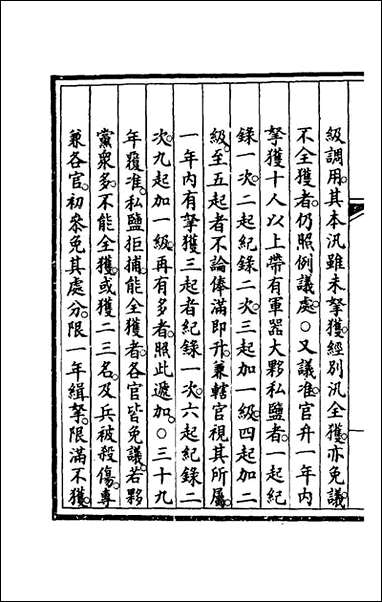 級調用。其本汛雖未拏獲。經別汛全獲。亦免議
不全獲者。仍照例議處。○又議准。官弁一年內
拏獲十人以上帶有軍器大夥私鹽者。一起紀
錄一次。二起紀錄二次。三起加一級。四起加二
級。至五起者不論俸滿即升。兼轄官視其所屬。
一年內有拏獲三起者紀錄一次。六起紀錄二
次。九起加一級。再有多者。照此遞加。○三十九
年覆准。私鹽拒捕。能全獲者。各官皆免議。若夥
黨衆多。不能全獲。或獲二三名。及兵被殺傷。專
兼各官。初參免其處分。限一年緝拏。限滿不獲。